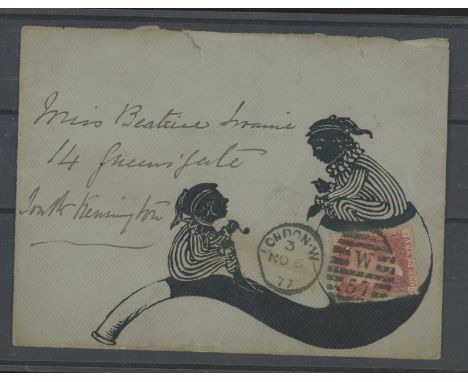 Miss Beatrice Swaine
14 Queens' gate
South Kensington
LONDON·W
3
NO 5
77
W
57